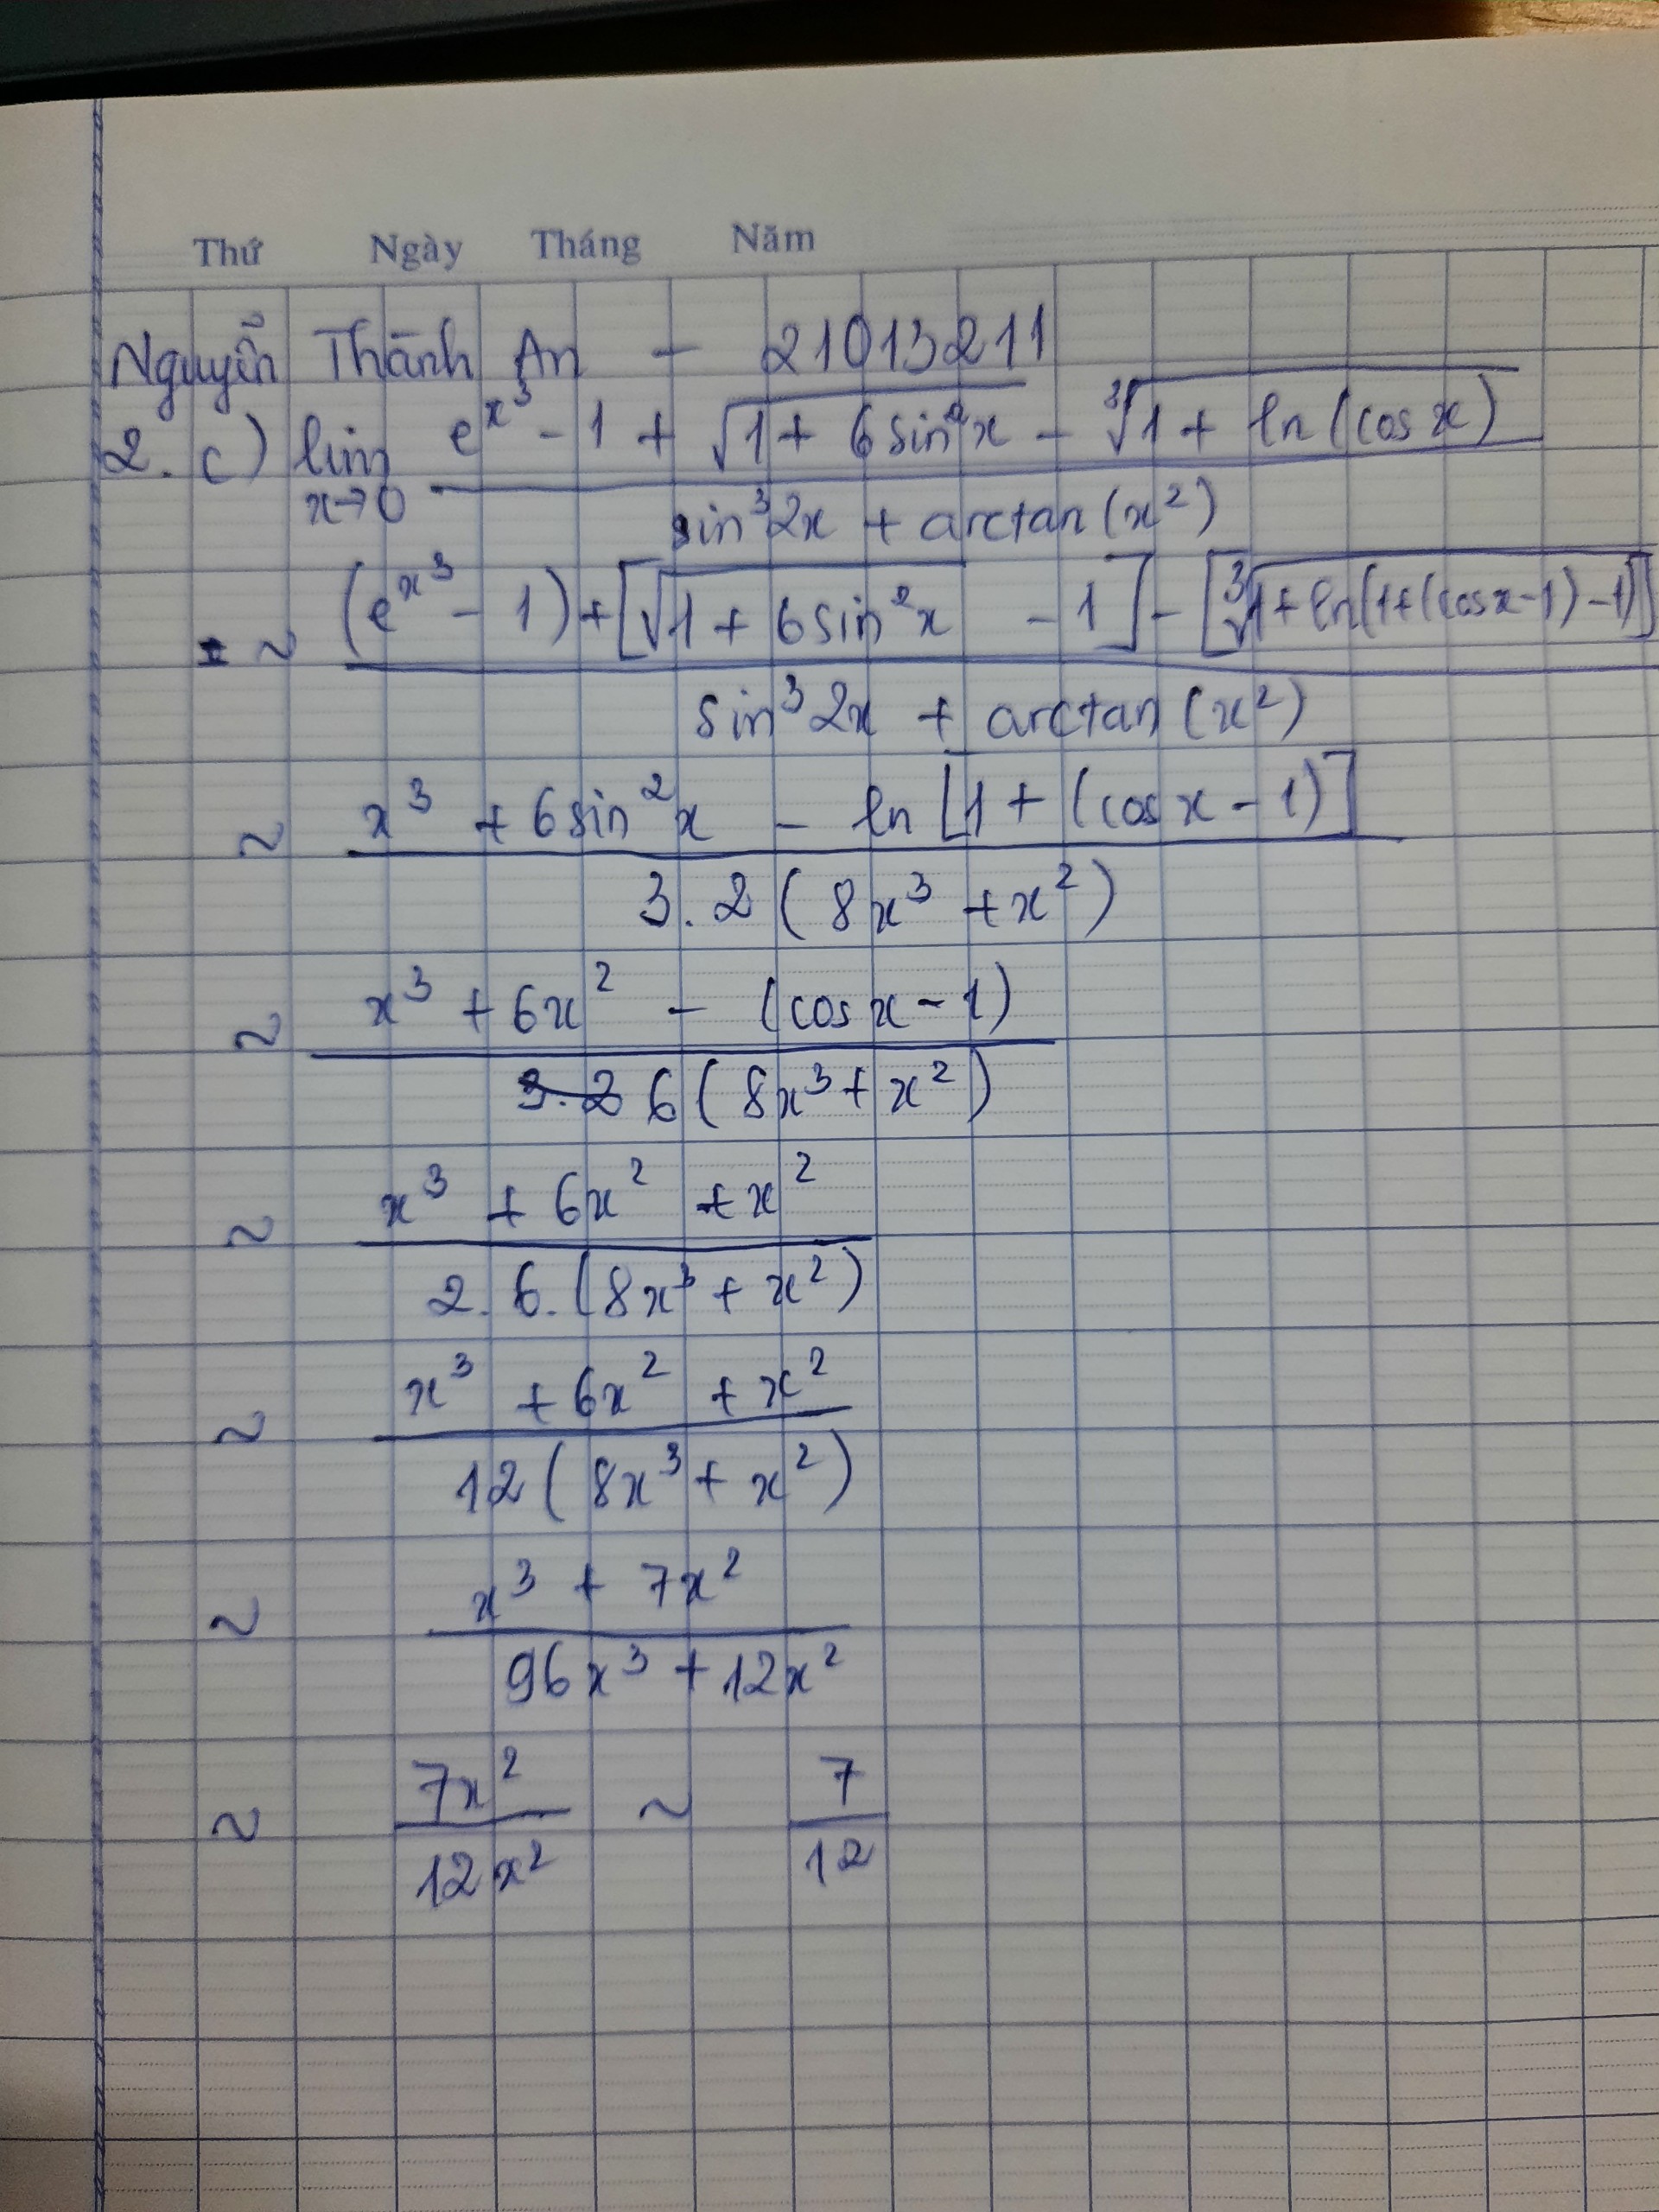 Thứ Ngày Tháng Năm
Nguyễn Thành An – 21013211
2. c) lim x→0 (e^x³ - 1 + √(1 + 6sin²x) - ³√(1 + ln(cosx))) / (sin³2x + arctan(x²))
~ ((e^x³ - 1) + [√(1 + 6sin²x) - 1] - [³√(1+ln[1+(cosx-1)-1)]]) / (sin³2x + arctan(x²))
~ (x³ + 6sin²x - ln[1+(cosx-1)]) / (3.2(8x³ + x²))
~ (x³ + 6x² - (cosx-1)) / (6(8x³+x²))
~ (x³ + 6x² + x²) / (2.6.(8x³+x²))
~ (x³ + 6x² + x²) / (12(8x³+x²))
~ (x³ + 7x²) / (96x³ + 12x²)
~ 7x² / 12x² ~ 7 / 12